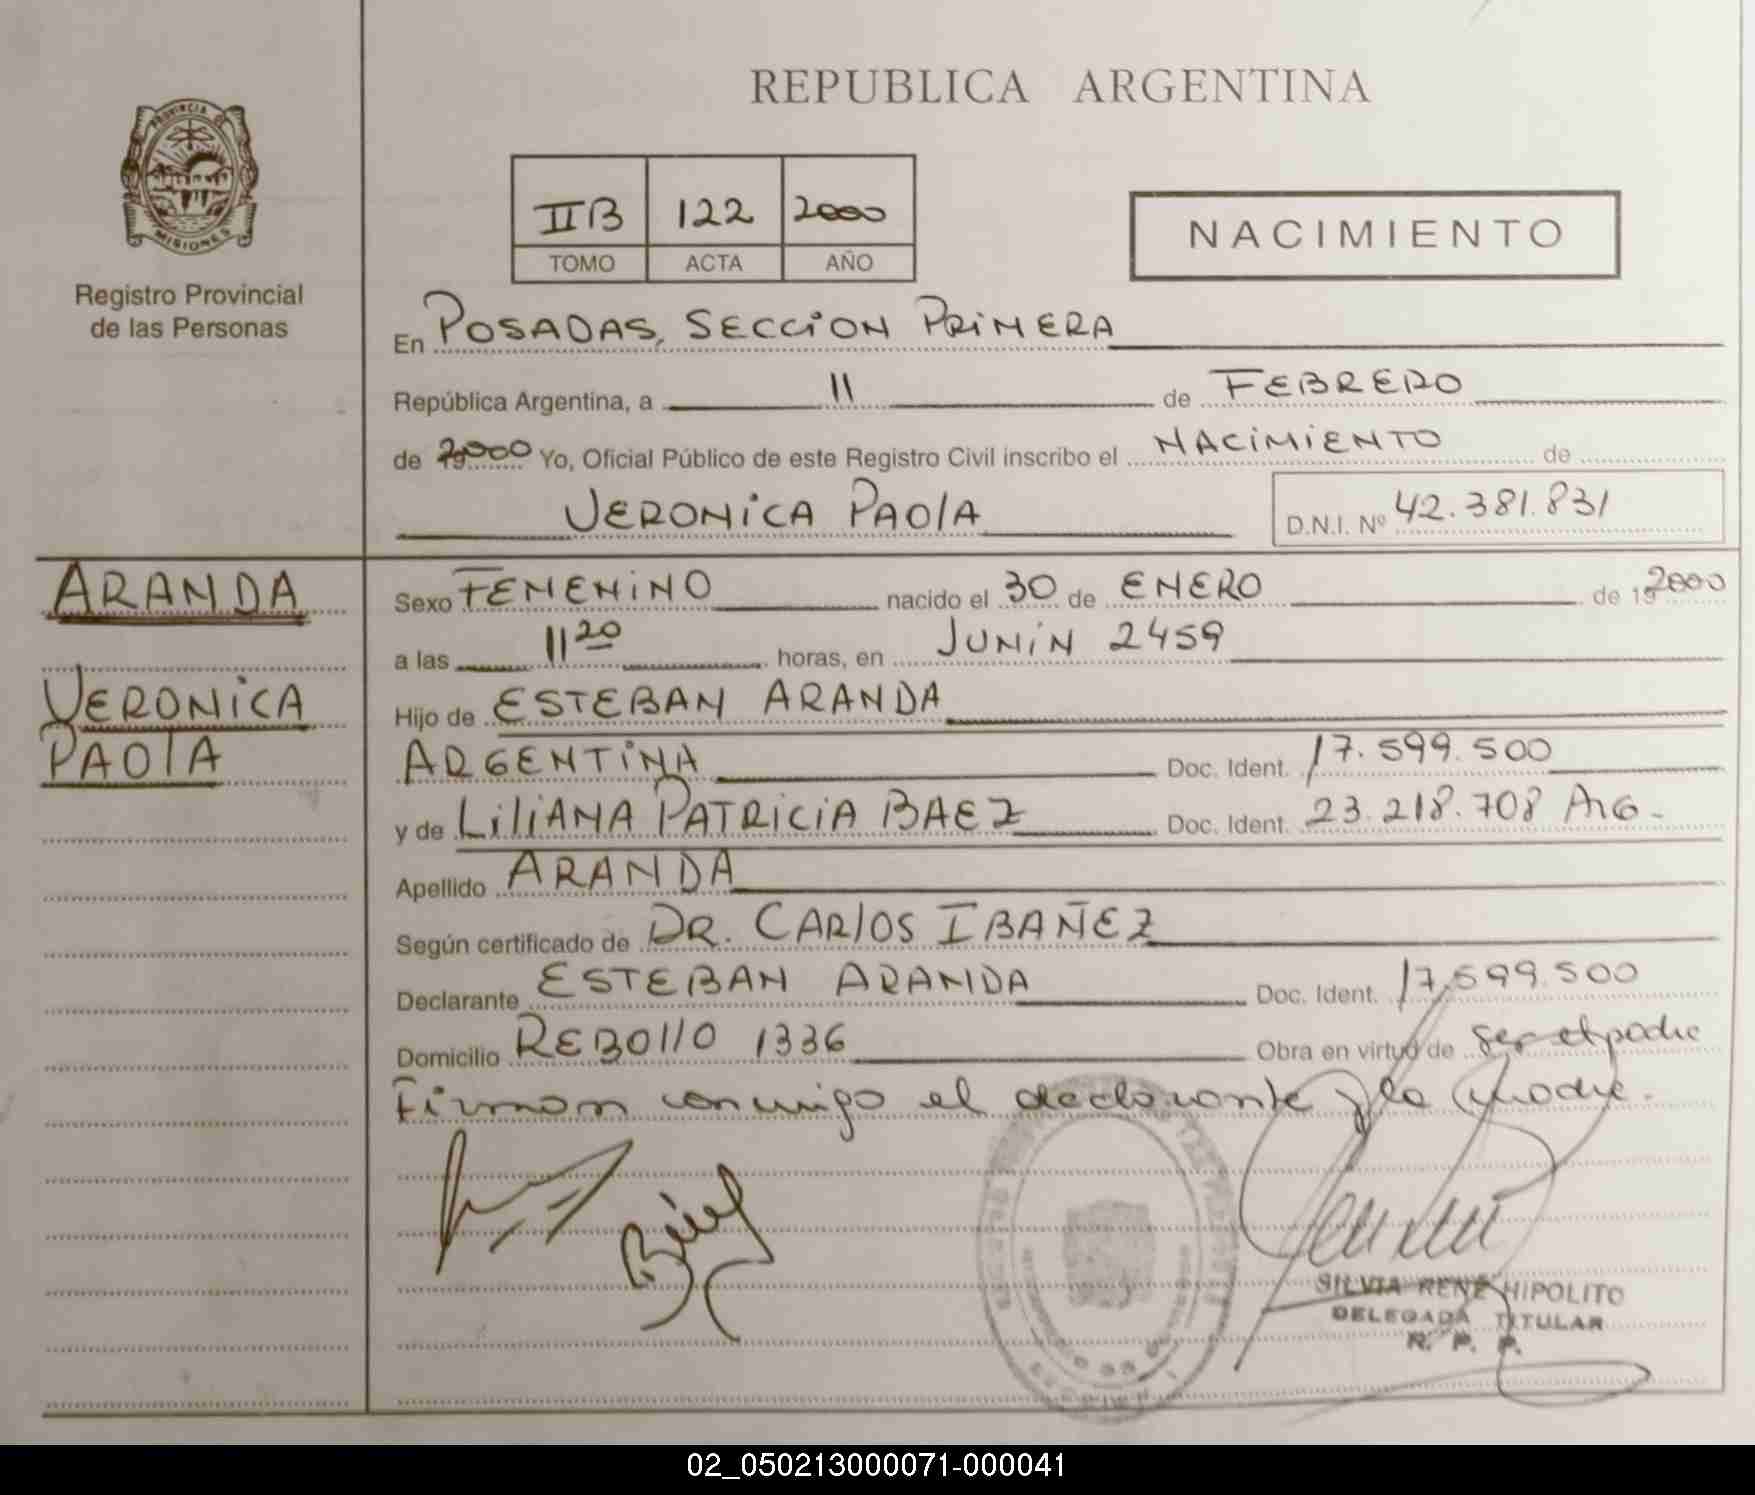 REPUBLICA ARGENTINA
PROVINCIA DE
MISIONES
Registro Provincial
de las Personas
IIB 122 2000
TOMO ACTA AÑO
NACIMIENTO
En POSADAS, SECCION PRIMERA
República Argentina, a 11 de FEBRERO
de 2000 Yo, Oficial Público de este Registro Civil inscribo el NACIMIENTO de
VERONICA PAOLA D.N.I. Nº 42.381.831
ARANDA
VERONICA
PAOLA
Sexo FEMENINO nacido el 30 de ENERO de 19 2000
a las 11 20 horas, en JUNIN 2459
Hijo de ESTEBAN ARANDA
ARGENTINA Doc. Ident. 17.599.500
y de LILIANA PATRICIA BAEZ Doc. Ident. 23.218.708 ARG.-
Apellido ARANDA
Según certificado de DR. CARLOS IBAÑEZ
Declarante ESTEBAN ARANDA Doc. Ident. 17.599.500
Domicilio REBOLLO 1336 Obra en virtud de ser el padre
Firman conmigo el declarante y la madre.
SILVIA RENE HIPOLITO
DELEGADA TITULAR
R. P. P.
02_050213000071-000041